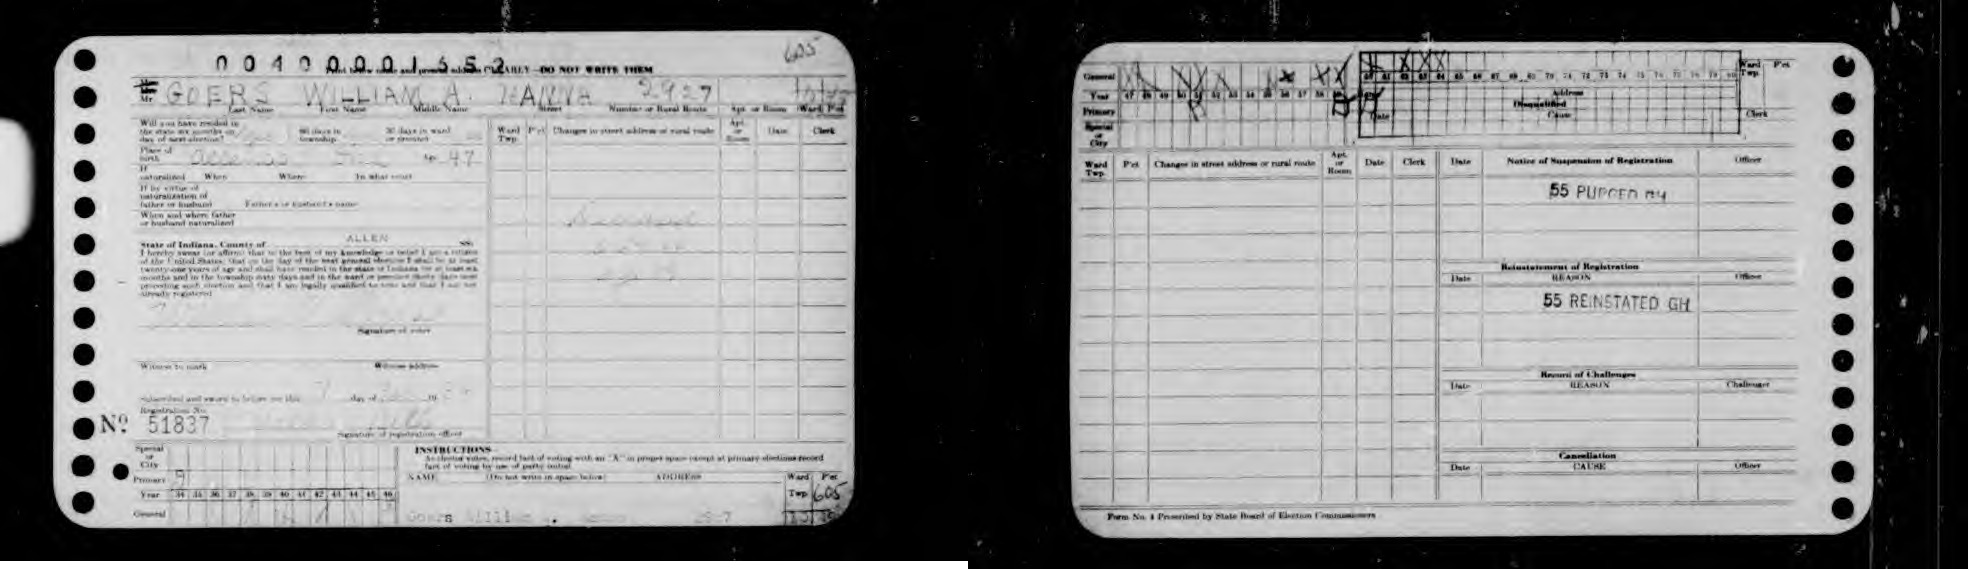 605
00400001652
Print below name and present address CLEARLY—DO NOT WRITE THEM
Mr GOERS WILLIAM A. HANNA 2927
Last Name First Name Middle Name Street Number or Rural Route Apt. or Room Ward P'ct
Will you have resided in
the state six months on 60 days in 30 days in ward
day of next election? township or precinct
Ward Twp. P'ct Changes in street address or rural route Apt. or Room Date Clerk
Place of
birth Allen Co Age 47
If
naturalized When Where In what court
If by virtue of
naturalization of
father or husband Father's or husband's name
When and where father
or husband naturalized
State of Indiana, County of ALLEN SS:
I hereby swear (or affirm) that to the best of my knowledge or belief I am a citizen
of the United States; that on the day of the next general election I shall be at least
twenty-one years of age and shall have resided in the state of Indiana for at least six
months and in the township sixty days and in the ward or precinct thirty days next
preceding such election and that I am legally qualified to vote and that I am not
already registered
Signature of voter
Witness to mark Witness address
Subscribed and sworn to before me this 7 day of 19
Registration No.
Nº 51837
Signature of registration officer
Special
or
City
Primary
Year 34 35 36 37 38 39 40 41 42 43 44 45 46
General
INSTRUCTIONS—
As elector votes, record fact of voting with an "X" in proper space except at primary elections record
fact of voting by use of party initial.
NAME (Do not write in space below) ADDRESS Ward P'ct
Twp. 605
Goers William A.
General
Year 47 48 49 50 51 52 53 54 55 56 57 58 59
Primary
Special
or
City
60 61 62 63 64 65 66 67 68 69 70 71 72 73 74 75 76 77 78 79 80
Ward Twp. P'ct
Address
Disqualified
Date Cause Clerk
Ward Twp. P'ct Changes in street address or rural route Apt. or Room Date Clerk
Date Notice of Suspension of Registration Officer
55 PURGED
Reinstatement of Registration
Date REASON Officer
55 REINSTATED GH
Record of Challenges
Date REASON Challenger
Cancellation
Date CAUSE Officer
Form No. 4 Prescribed by State Board of Election Commissioners